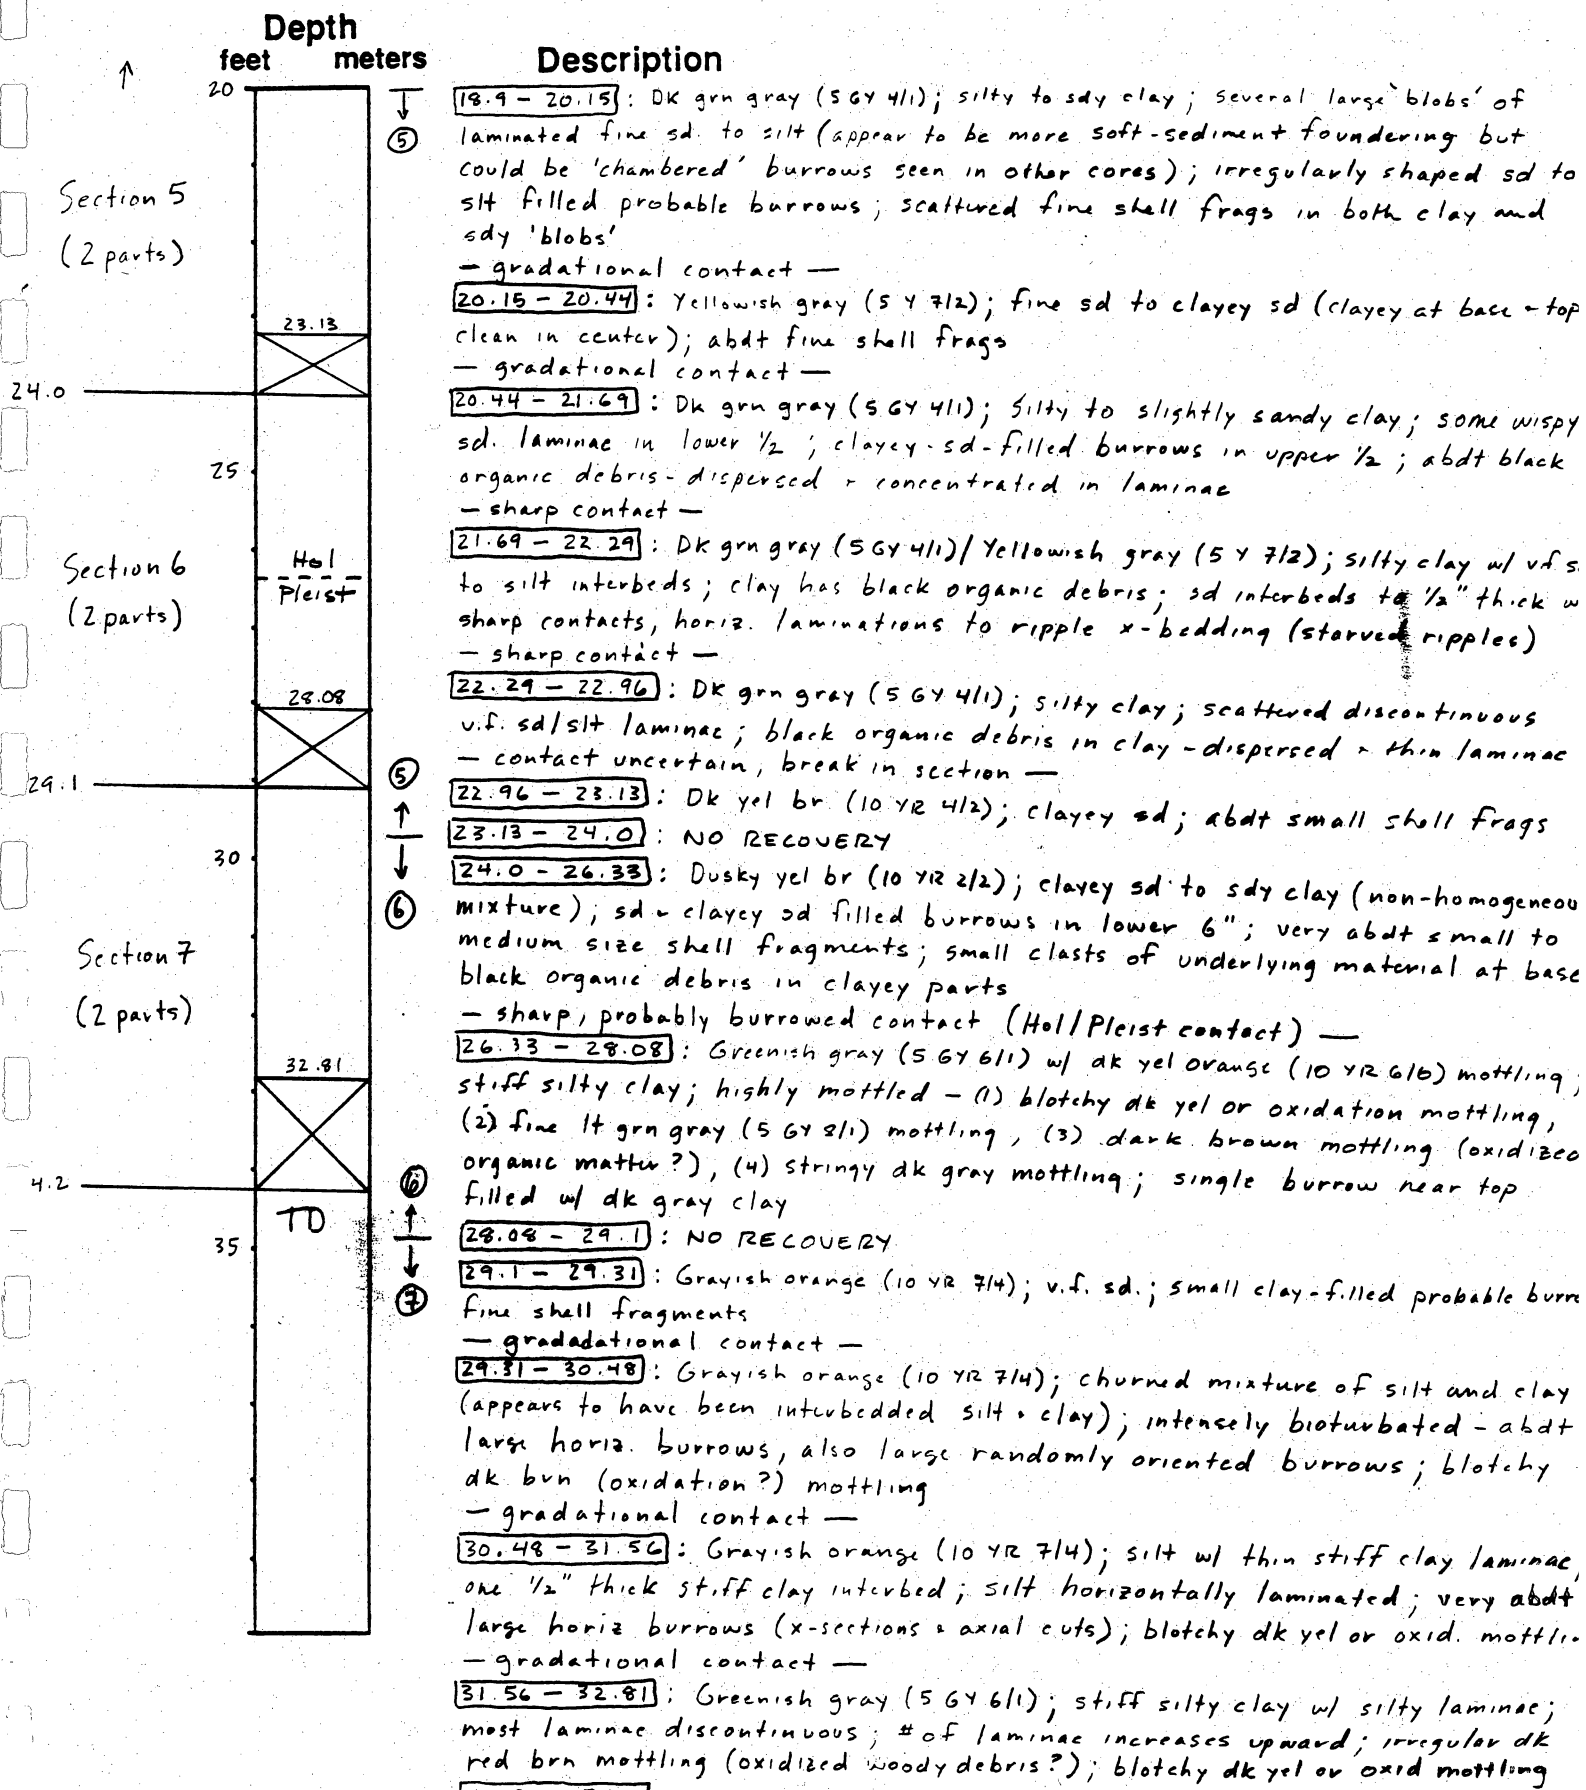 Depth
feet meters Description
↑
20
↓
⑤
Section 5
(2 parts)
23.13
24.0
25
Section 6
(2 parts)
Hol
Pleist
28.08
29.1
⑤
↑
↓
⑥
30
Section 7
(2 parts)
32.81
4.2
⑥
↑
↓
⑦
TD
35
18.9 – 20.15 : DK grn gray (5 GY 4/1); silty to sdy clay; several large 'blobs' of
laminated fine sd. to silt (appear to be more soft-sediment foundering but
could be 'chambered' burrows seen in other cores); irregularly shaped sd to
slt filled probable burrows; scattered fine shell frags in both clay and
sdy 'blobs'
— gradational contact —
20.15 – 20.44 : Yellowish gray (5 Y 7/2); fine sd to clayey sd (clayey at base + top
clean in center); abdt fine shell frags
— gradational contact —
20.44 – 21.69 : Dk grn gray (5 GY 4/1); silty to slightly sandy clay; some wispy
sd. laminae in lower 1/2 ; clayey-sd-filled burrows in upper 1/2 ; abdt black
organic debris - dispersed + concentrated in laminae
— sharp contact —
21.69 – 22.29 : Dk grn gray (5 GY 4/1)/Yellowish gray (5 Y 7/2); silty clay w/ vf s
to silt interbeds; clay has black organic debris; sd interbeds to 1/2" thick w
sharp contacts, horiz. laminations to ripple x-bedding (starved ripples)
— sharp contact —
22.29 – 22.96 : Dk grn gray (5 GY 4/1); silty clay; scattered discontinuous
v.f. sd/slt laminae; black organic debris in clay - dispersed + thin laminae
— contact uncertain, break in section —
22.96 – 23.13 : Dk yel br (10 YR 4/2); clayey sd; abdt small shell frags
23.13 – 24.0 : NO RECOVERY
24.0 – 26.33 : Dusky yel br (10 YR 2/2); clayey sd to sdy clay (non-homogeneou
mixture); sd + clayey sd filled burrows in lower 6"; very abdt small to
medium size shell fragments; small clasts of underlying material at base
black organic debris in clayey parts
— sharp, probably burrowed contact (Hol/Pleist contact) —
26.33 – 28.08 : Greenish gray (5 GY 6/1) w/ dk yel orange (10 YR 6/6) mottling;
stiff silty clay; highly mottled – (1) blotchy dk yel or oxidation mottling,
(2) fine lt grn gray (5 GY 8/1) mottling, (3) dark brown mottling (oxidized
organic matter?), (4) stringy dk gray mottling; single burrow near top
filled w/ dk gray clay
28.08 – 29.1 : NO RECOVERY
29.1 – 29.31 : Grayish orange (10 YR 7/4); v.f. sd.; small clay-filled probable burro
fine shell fragments
— gradadational contact —
29.31 – 30.48 : Grayish orange (10 YR 7/4); churned mixture of silt and clay
(appears to have been interbedded silt + clay); intensely bioturbated – abdt
large horiz. burrows, also large randomly oriented burrows; blotchy
dk brn (oxidation?) mottling
— gradational contact —
30.48 – 31.56 : Grayish orange (10 YR 7/4); silt w/ thin stiff clay laminae,
one 1/2" thick stiff clay interbed; silt horizontally laminated; very abdt
large horiz burrows (x-sections + axial cuts); blotchy dk yel or oxid. mottli
— gradational contact —
31.56 – 32.81 : Greenish gray (5 GY 6/1); stiff silty clay w/ silty laminae;
most laminae discontinuous; # of laminae increases upward; irregular dk
red brn mottling (oxidized woody debris?); blotchy dk yel or oxid mottling